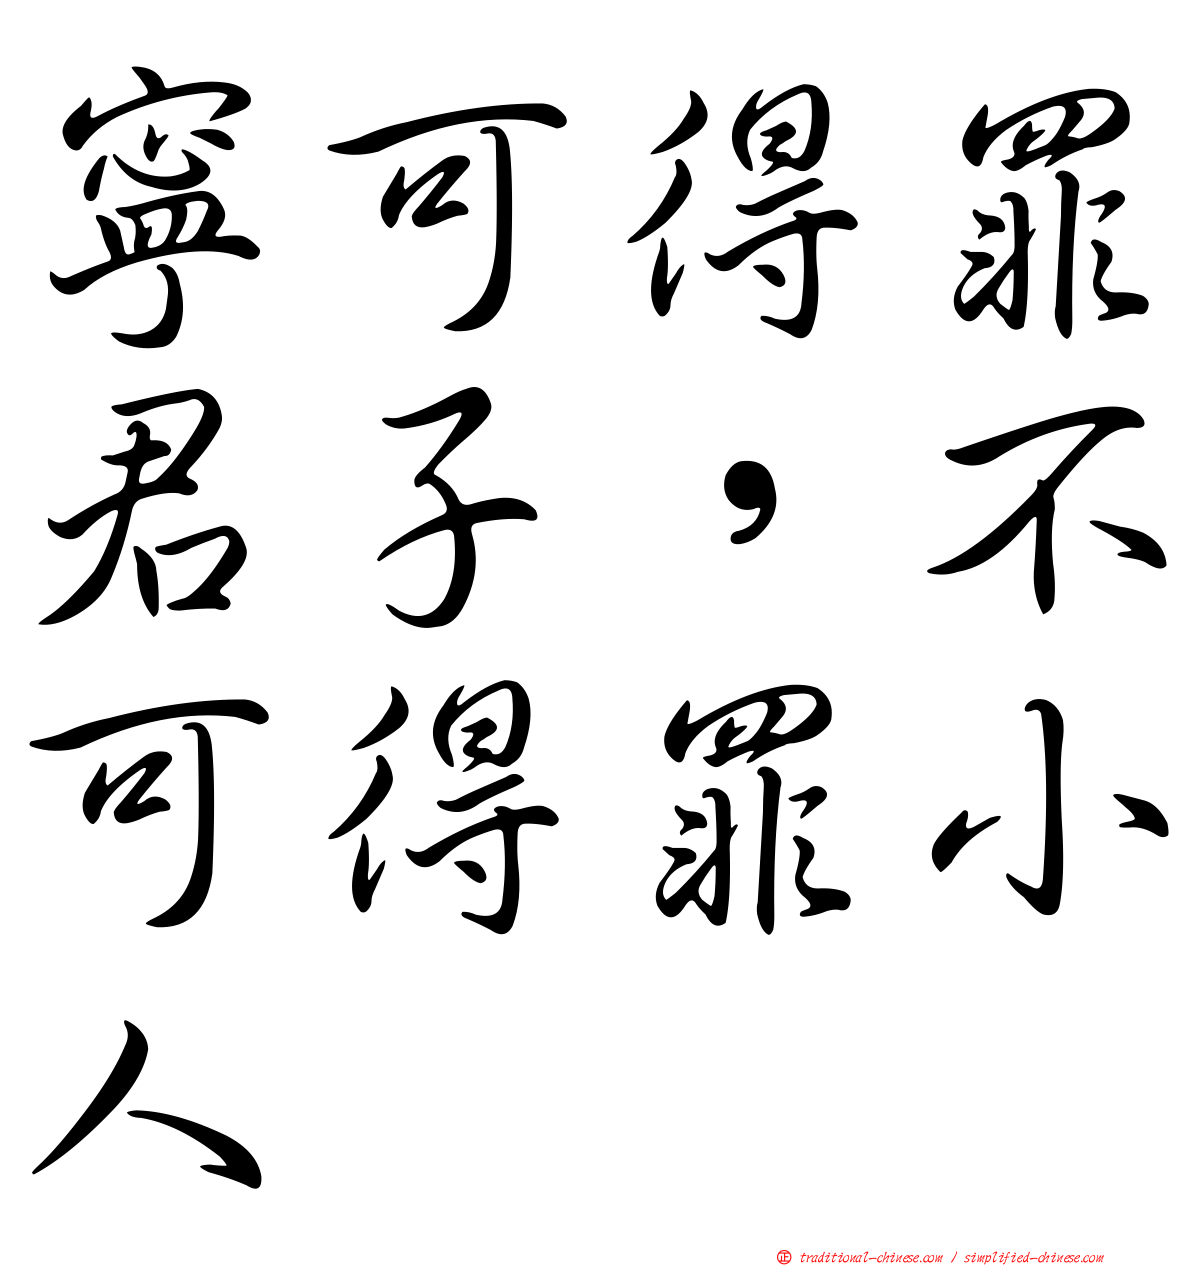 寧可得罪
君子，不
可得罪小
人
正 traditional-chinese.com / simplified-chinese.com